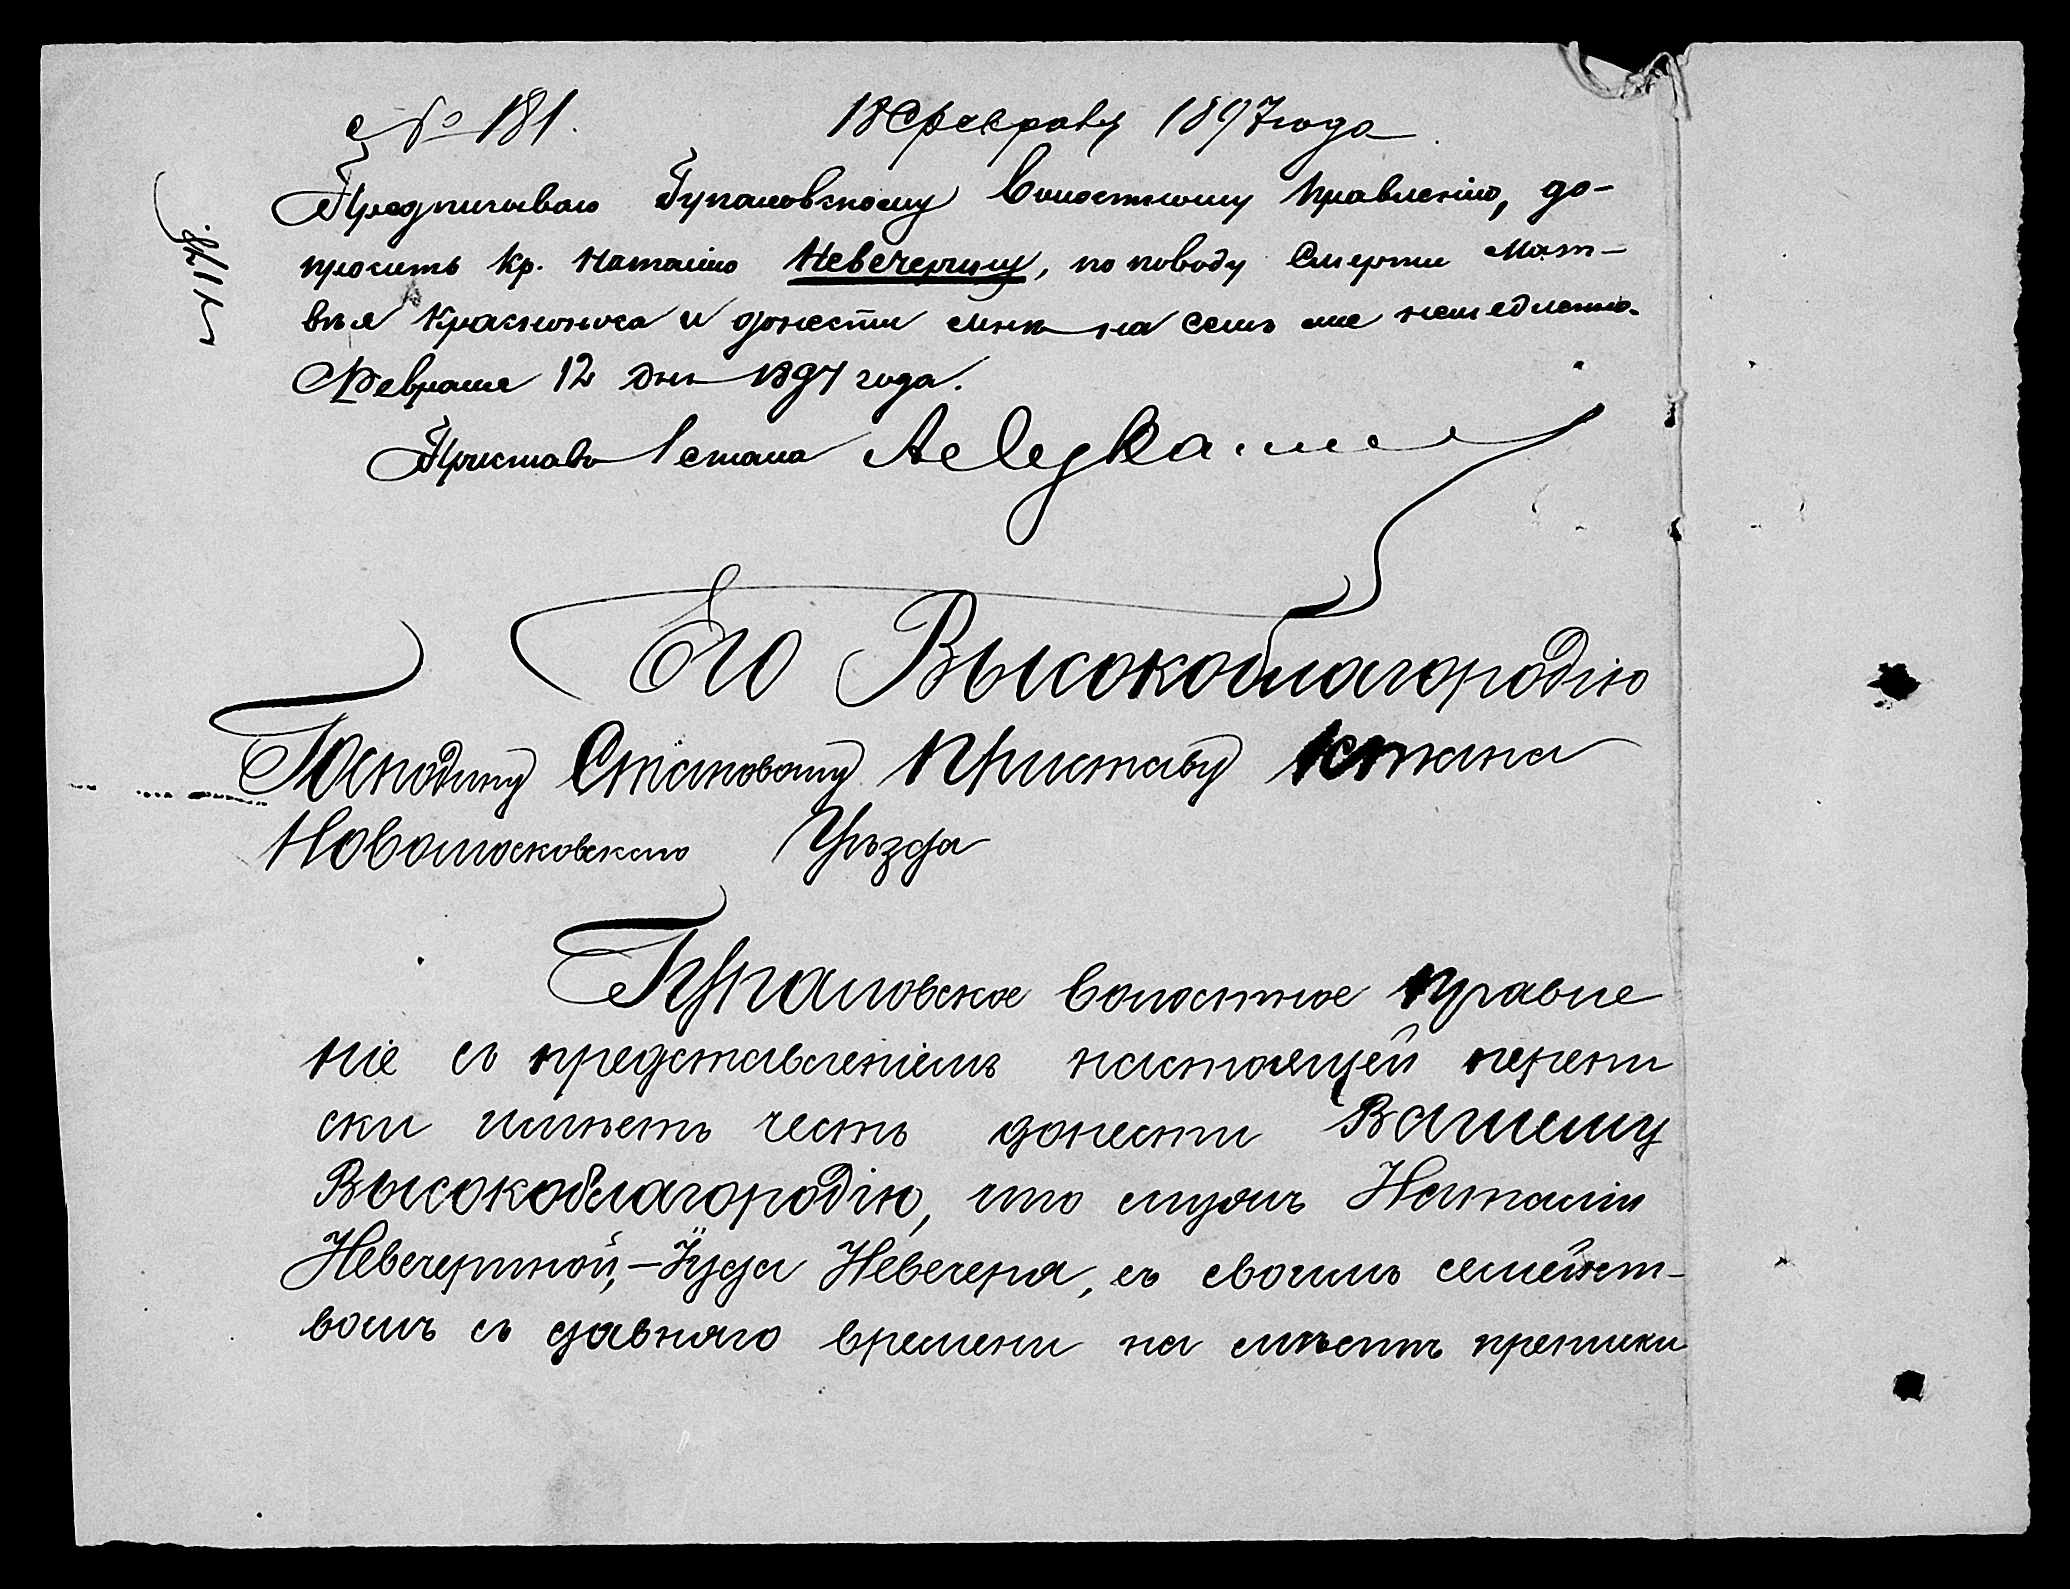 № 181. 18 Февраля 1897 года
Предписываю Гупаловскому Волостному Правленію, до-
просить кр. Наталію Невечерину, по поводу Смерти Мат-
вѣя Красноноса и донести мнѣ на семъ же немедленно.
Февраля 12 дня 1897 года.
Приставъ 1 стана
Его Высокоблагородію
Господину Становому Приставу 1 стана
Новомосковскаго Уѣзда
Гупаловское волостное правле
ніе съ представленіемъ настоящей перепи
ски имѣетъ честь донести Вашему
Высокоблагородію, что мужъ Наталіи
Невечериной, – Іуда Невечеря, съ своимъ семейст-
вомъ съ давняго времени на мѣстѣ приписки